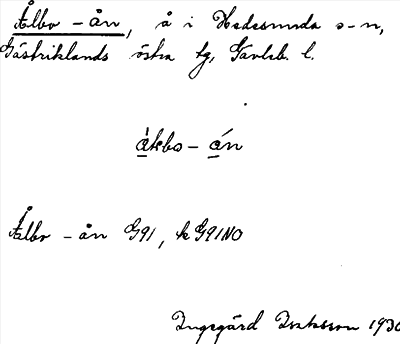 Ålbo-ån, å i Hedesunda s-n,
Gästriklands östra tg, Gävleb. l.
åkbo-án
Ålbo-ån G91, k G91NO
Ingegärd Isaksson 1930